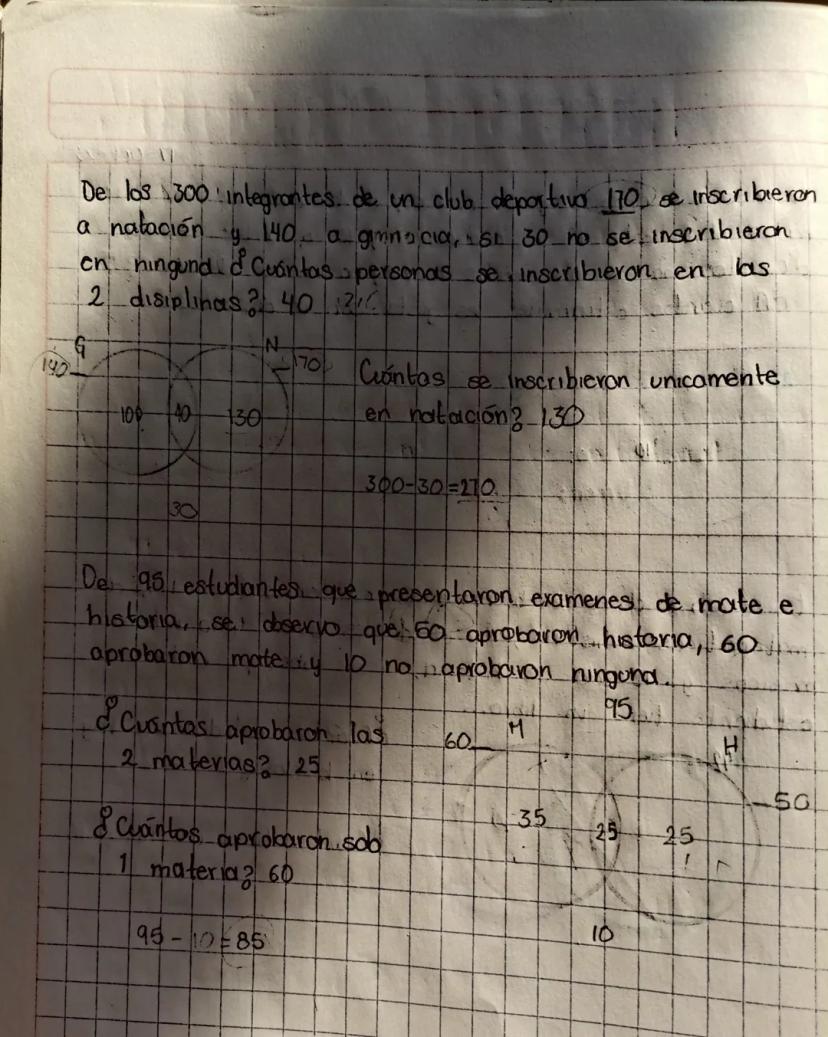 De los 300 integrantes de un club deportivo 170 se inscribieron
a natación y 140 a gimnacia, si 30 no se inscribieron
en ninguna ¿Cuántas personas se inscribieron en las
2 disiplinas? 40
G
N
140
170
100
40
130
30
Cuántas se inscribieron unicamente
en natación? 130
300-30=270
De 95 estudiantes que presentaron examenes de mate e
historia, se observo que 50 aprobaron historia, 60
aprobaron mate y 10 no aprobaron ninguna.
¿Cuantos aprobaron las
2 materias? 25
95
60
M
H
50
35
25
25
10
¿Cuántos aprobaron solo
1 materia? 60
95-10=85